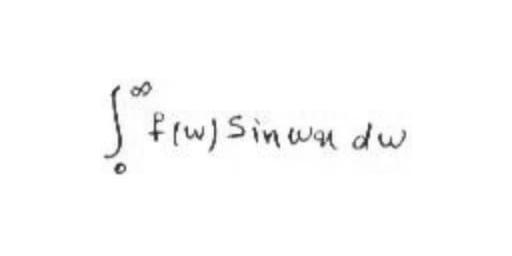 ∫₀^∞ f(w) sin wx dw